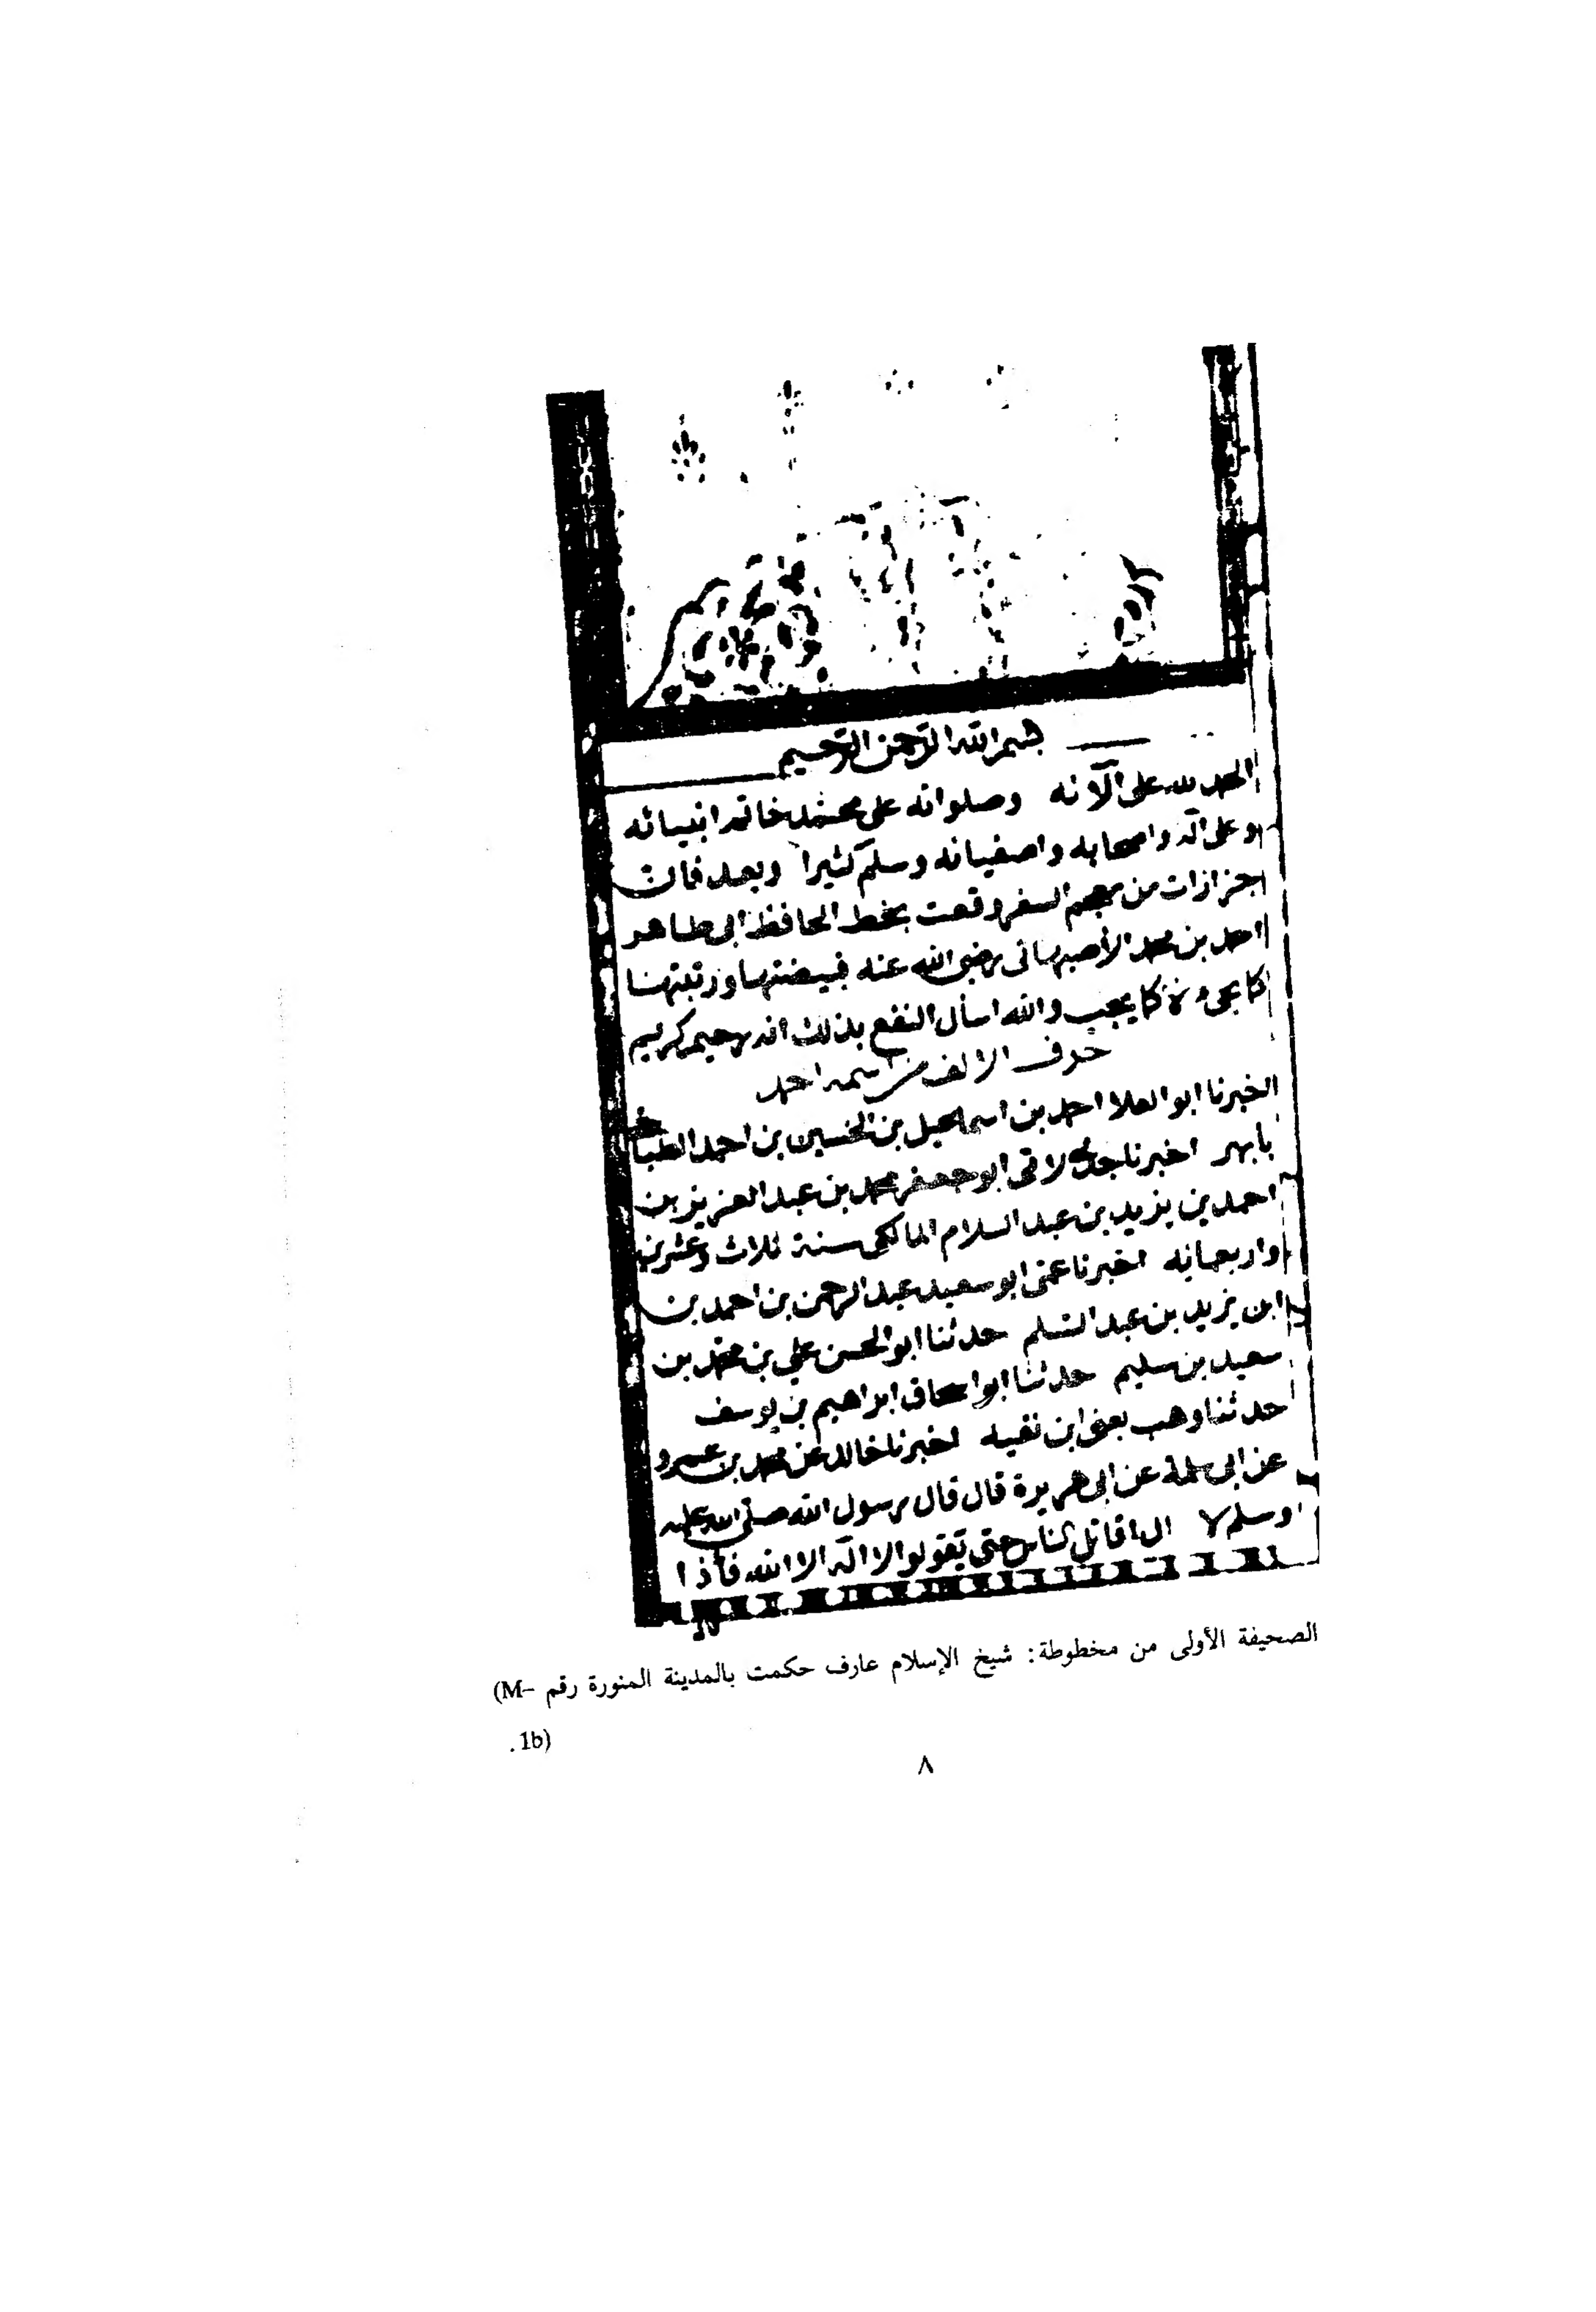 بسم الله الرحمن الرحيم
الحمد لله على آلائه وصلواته على محمد خاتم انبيائه
وعلى آله واصحابه واصفيائه وسلم كثيرا وبعد فان
جزازات من معجم السفر وقعت بخط الحافظ ابى طاهر
احمد بن محمد الأصبهانى رضى الله عنه فبيضتها ورتبتها
كما يجئ لا كما يجب والله اسأل النفع بذلك انه رحيم كريم
حرف الالف من اسمه احمد
اخبرنا ابو العلا احمد بن اسماعيل بن الحسين بن احمد الطباخ
بابهر اخبرنا جدى لامى ابو جعفر محمد بن عبد العزيز بن
احمد بن يزيد بن عبد السلام المالكى سنة ثلاث وعشرين
واربعمايه اخبرنا عمى ابو سعيد عبد الرحمن بن احمد بن
ابن يزيد بن عبد السلم حدثنا ابو الحسن علي بن محمد بن
سعيد بن سليم حدثنا ابو اسحاق ابراهيم بن يوسف
حدثنا وهب يعنى ابن بقيه اخبرنا خالد عن محمد بن عمرو
عن ابى سلمة عن ابى هريرة قال قال رسول الله صلى الله عليه
وسلم لا ازال اقاتل الناس حتى يقولوا لا اله الا الله فأذا
الصحيفة الأولى من مخطوطة: شيخ الإسلام عارف حكمت بالمدينة المنورة رقم (M-
1b).
٨